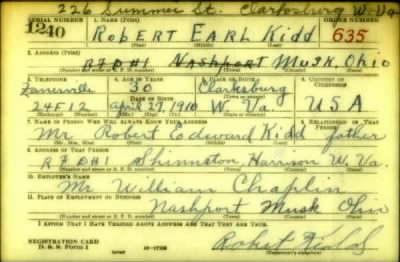 226 Summer St. Clarksburg W. Va
SERIAL NUMBER 1. NAME (Print) ORDER NUMBER
1240 ROBERT EARL KIDD 635
(First) (Middle) (Last)
2. ADDRESS (Print)
R7D#1 NASHPORT MUSK. OHIO
(Number and street or R. F. D. number) (Town) (County) (State)
3. TELEPHONE 4. AGE IN YEARS 5. PLACE OF BIRTH 6. COUNTRY OF CITIZENSHIP
Zanesville 30 Clarksburg
DATE OF BIRTH
24F12 April 27, 1910 W. Va. USA
(Exchange) (Number) (Mo.) (Day) (Yr.) (State or country)
7. NAME OF PERSON WHO WILL ALWAYS KNOW YOUR ADDRESS 8. RELATIONSHIP OF THAT PERSON
Mr. Robert Edward Kidd father
(Mr., Mrs., Miss) (First) (Middle) (Last)
9. ADDRESS OF THAT PERSON
R7D#1 Shinnston, Harrison W. Va.
(Number and street or R. F. D. number) (Town) (County) (State)
10. EMPLOYER'S NAME
Mr. William Chaplin
11. PLACE OF EMPLOYMENT OR BUSINESS
Nashport Musk Ohio
(Number and street or R. F. D. number) (Town) (County) (State)
I AFFIRM THAT I HAVE VERIFIED ABOVE ANSWERS AND THAT THEY ARE TRUE.
REGISTRATION CARD
D. S. S. Form 1 (over) Robert Kidd
(Registrant's signature)